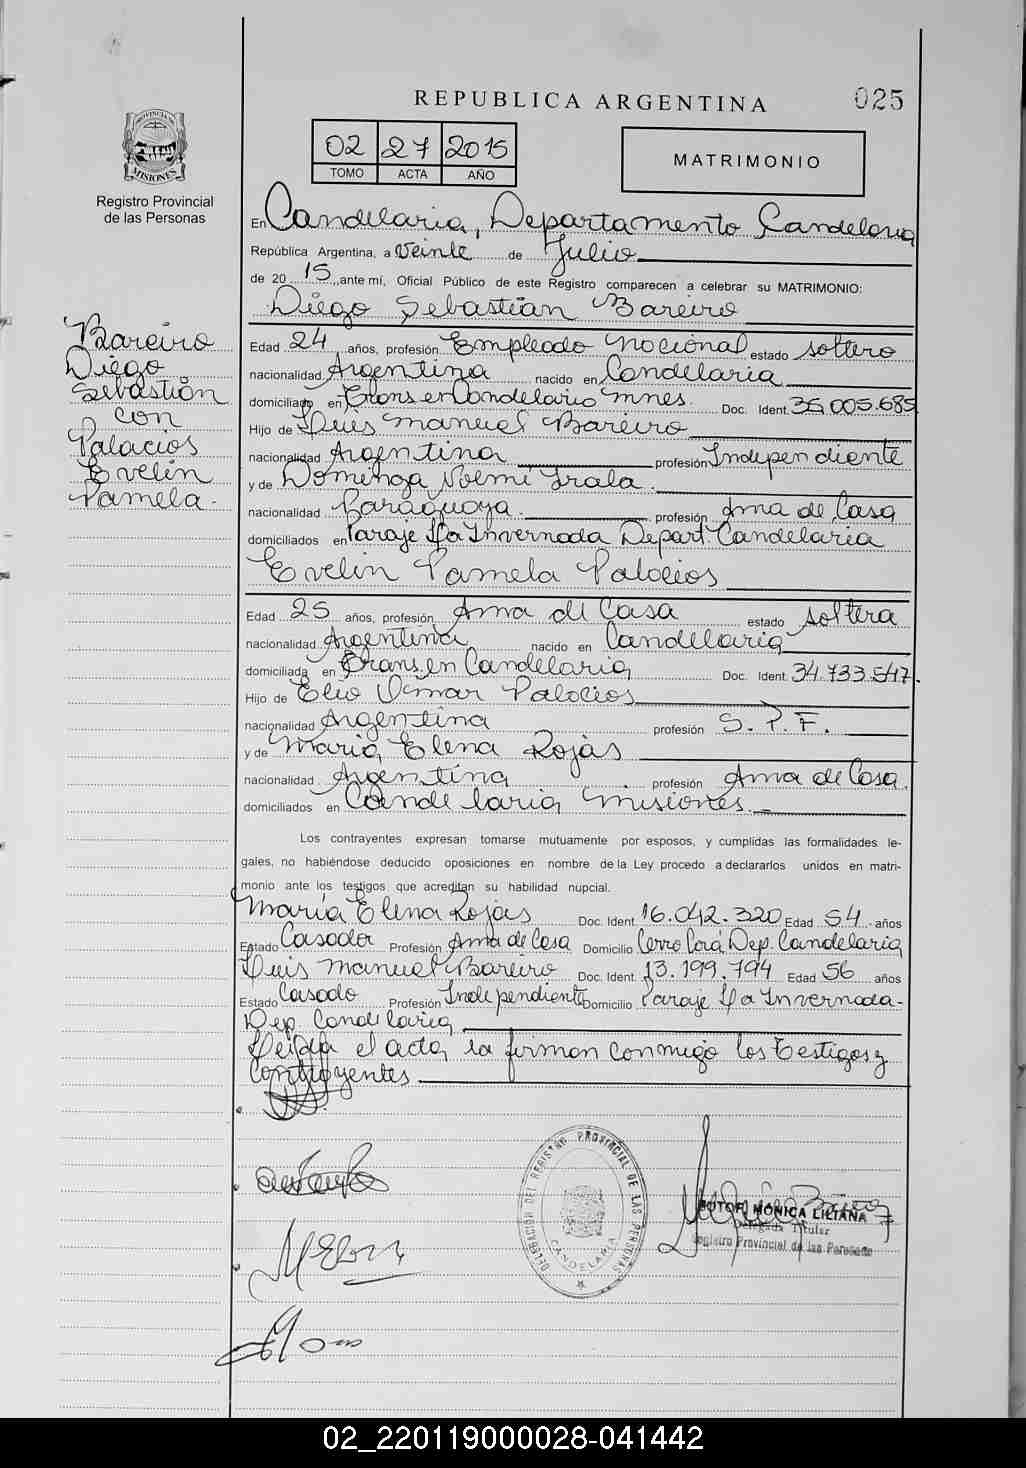 REPUBLICA ARGENTINA
025
02 27 2015
TOMO ACTA AÑO
MATRIMONIO
PROVINCIA DE
MISIONES
Registro Provincial
de las Personas
En Candelaria, Departamento Candelaria
República Argentina, a Veinte de Julio
de 20 15 ante mí, Oficial Público de este Registro comparecen a celebrar su MATRIMONIO:
Diego Sebastián Bareiro
Bareiro
Diego
Sebastián
con
Palacios
Evelin
Pamela.
Edad 24 años, profesión Empleado Nacional estado soltero
nacionalidad Argentina nacido en Candelaria
domiciliado en Trans en Candelaria Mnes. Doc. Ident. 35.005.685
Hijo de Luis Manuel Bareiro
nacionalidad Argentina profesión Independiente
y de Domenga Noemi Irala.
nacionalidad Paraguaya. profesión Ama de Casa
domiciliados en Paraje La Invernada Depart. Candelaria
Evelin Pamela Palacios
Edad 25 años, profesión Ama de Casa estado soltera
nacionalidad Argentina nacido en Candelaria
domiciliada en Trans. en Candelaria Doc. Ident. 34.733.547.
Hijo de Elio Omar Palacios
nacionalidad Argentina profesión S. P. F.
y de Maria Elena Rojas
nacionalidad Argentina profesión Ama de Casa.
domiciliados en Candelaria, Misiones.
Los contrayentes expresan tomarse mutuamente por esposos, y cumplidas las formalidades le-
gales, no habiéndose deducido oposiciones en nombre de la Ley procedo a declararlos unidos en matri-
monio ante los testigos que acreditan su habilidad nupcial.
María Elena Rojas Doc. Ident. 16.042.320 Edad 54 años
Estado Casada Profesión Ama de Casa Domicilio Cerro Corá Dep. Candelaria
Luis Manuel Bareiro Doc. Ident. 13.199.794 Edad 56 años
Estado Casado Profesión Independiente Domicilio Paraje La Invernada-
Dep. Candelaria
Leída el acta, la firman conmigo los testigos y
contrayentes
DELEGACIÓN DEL REGISTRO PROVINCIAL DE LAS PERSONAS
CANDELARIA
MÓNICA LILIANA
Delegada Titular
Registro Provincial de las Personas
02_220119000028-041442